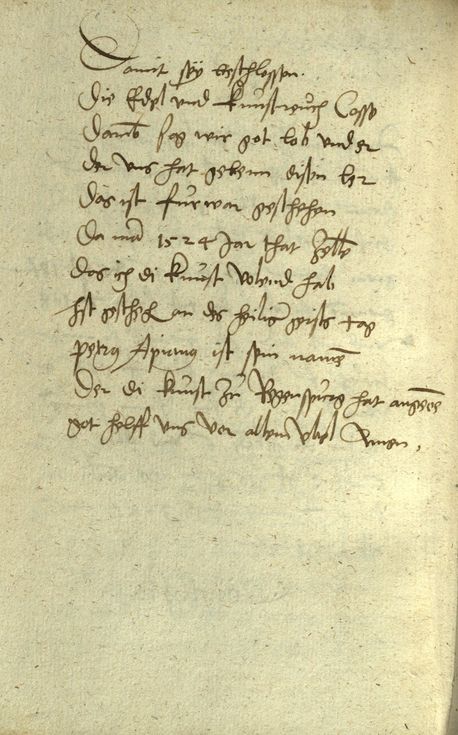 Damit sey beschlossen.
Die Edel und kunstreych Coss
Damb sag wir got lob und er
der uns hat geben disen ler
Das ist fürwar geschehen
Da man 1524 Jar that zelle
Das ich di kunst volend hab
Ist gescheh an des heilig geists tag
petrus Apianus ist sein namē
Der di kunst zu Regenspurg hat
got helff uns vor allem ubel Amen,